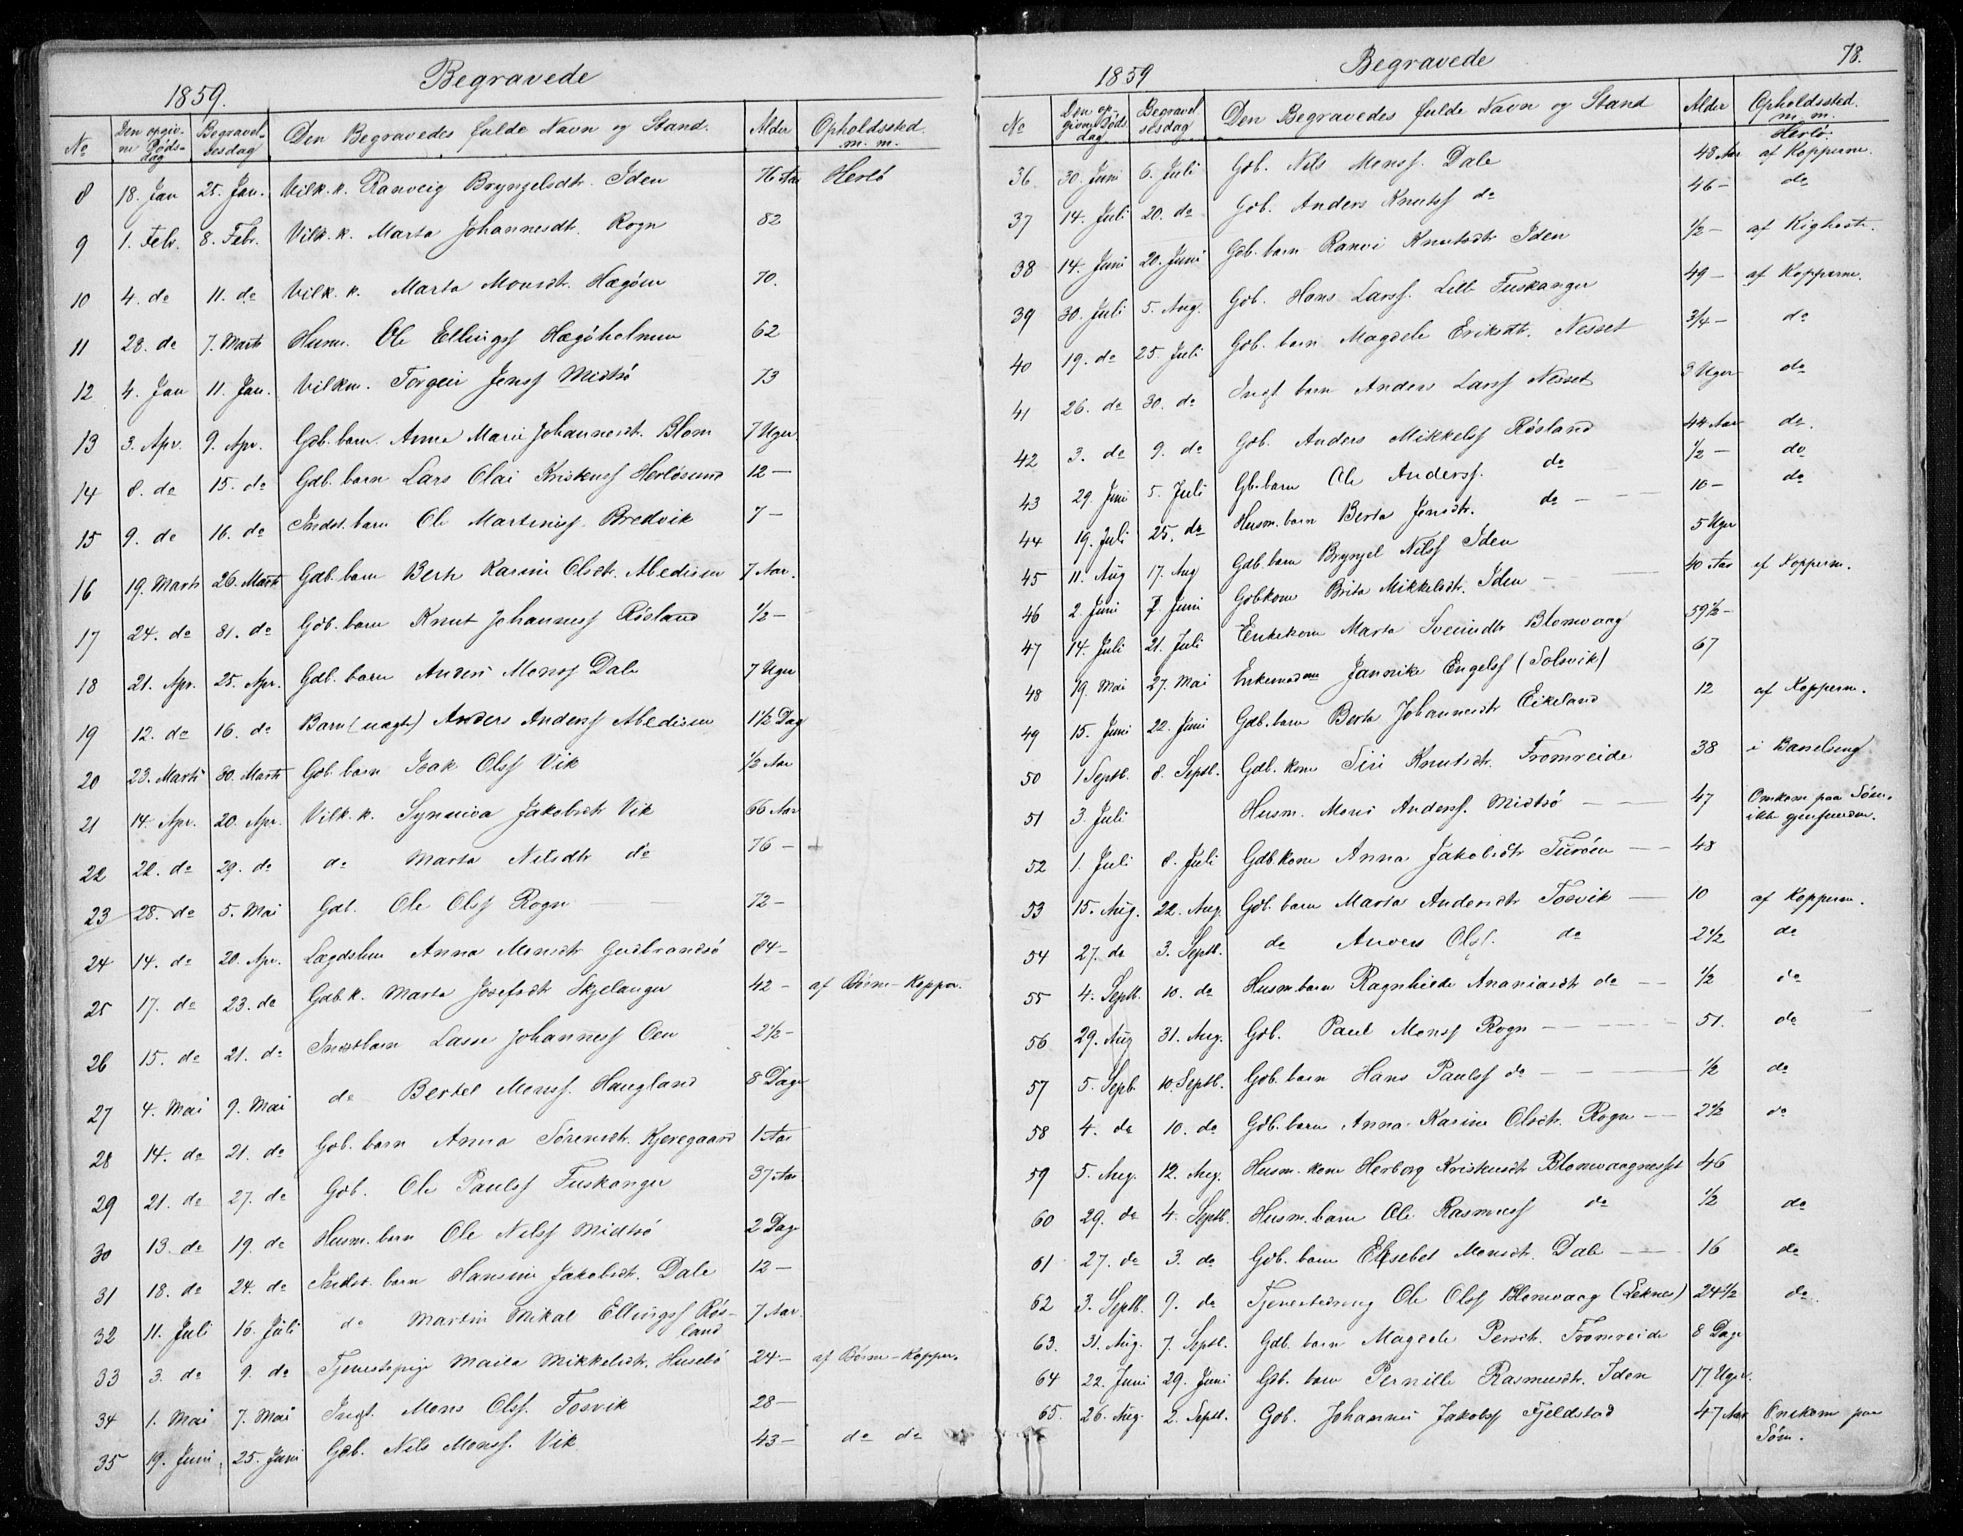 1859. Begravede
No Den opgivne Døds-dag Begravelsesdag Den Begravedes fulde Navn og Stand. Alder Opholdssted m. m.
8 18. Jan 25. Jan. Vilk.k. Ranveig Bryngelsdtr. Iden 76 Aar Herlø
9 1. Febr. 8. Febr. Vilk.k. Marta Johannesdt. Rogn 82
10 4. do 11. do Vilk.k. Marta Monsdt. Hægøen 70.
11 28. do 7. Marts Husm. Ole Ellingsf Hægøholmen 62
12 4. Jan 11. Jan. Vilkm. Torgeir Jensf Midtø 73
13 3. Apr. 9. Apr. Gdb. barn Anna Marie Johannesdt. Blom 7 Uger
14 8. do 15. do Gdb. barn Lars Olai Kristensf Herløsund 12 —
15 9. do 16. do Indst. barn Ole Martinusf. Bredvik 7 —
16 19. Marts 26. Marts Gdb. barn Berte Karine Olsdtr. Abedisen 7 Aar.
17 24. do 31. do Gdb. barn Knut Johannesf Røsland ½ —
18 21. Apr. 25. Apr. Gdb. barn Anders Monsf Dale 7 Uger
19 12. do 16. do Barn (uægt) Anders Andersf Abedisen 1½ Dag
20 23. Marts 30. Marts Gdb. barn Isak Olsf Vik ½ Aar
21 14. Apr. 20. Apr. Vilk.k. Synneva Jakobsdt Vik 66 Aar
22 22. do 29. do do Marta Nilsdtr do 76 —
23 28. do 5. Mai Gdb. Ole Olsf Rogn 72 —
24 14. do 20. Apr. Lægdslem Anna Monsdt Gudbrandsø 84 —
25 17. do 23. do Gdb.k. Marta Josefsdt Skjelanger 42 — af Børne-Kopper.
26 15. do 21. do Indstbarn Lasse Johannesf Oen 2½ —
27 4. Mai 9. Mai do Bertel Monsf. Haugland 8 Dage
28 14. do 21. do Gdb. barn Anna Sørensdt. Kjeregaard 1 Aar
29 21. do 27. do Gdb. Ole Paulsf Tuskanger 37 Aar
30 13. do 19. do Husm. barn Ole Nilsf Midtø 2 Dage
31 18. do 24. do Indst. barn Hansine Jakobsdt. Dale 12 —
32 11. Juli 16. Juli do Martin Mikal Ellingsf Røsland 7 Aar.
33 3. do 9. do Tjenestepige Marta Mikkelsdt. Husebø 24 — af Børne-Kopper.
34 1. Mai 7. Mai Ingt. Mons Olsf. Tosvik 28 —
35 19. Juni 25. Juni Gdb. Nils Monsf. Vik 43 — do do
1859 Begravede 78.
No Den opgivne Dødsdag Begravelsesdag Den Begravedes fulde Navn og Stand Alder Opholdssted. m. m.
Herlø.
36 30. Juni 6. Juli Gdb. Nils Monsf. Dale 48 Aar af Kopperne.
37 14. Juli 20. do Gdb. Anders Knutsf do 46 — do
38 14. Juni 20. Juni Gdb. barn Ranvei Knutsdtr Iden ½ — af Kighoste.
39 30. Juli 5. Aug. Gdb. Hans Larsf. Lille Tuskanger 49 — af Kopperne.
40 19. do 25. Juli Gdb. barn Magdele Eriksdt. Nesset ¾ — do
41 26. do 30. do Ingt barn Anders Larsf Nesset 3 Uger do
42 3. do 9. do Gdb. Anders Mikkelsf Røsland 44 Aar do.
43 29. Juni 5. Juli Gb. barn Ole Andersf. do ½ — do
44 19. Juli 25. do Husm. barn Berta Jensdtr. do — 10 — do
45 11. Aug 17. Aug Gdb. barn Bryngel Nilsf Iden 5 Uger
46 2. Juni 7. Juni Gdbkone Brita Mikkelsdt. Iden — 40 Aar af Kopperne.
47 14. Juli 21. Juli Enkekone Marta Sveinsdtr Blomvaag 59½ —
48 19. Mai 27. Mai Enkemadme Jannike Engelsf (Solsvik) 67
49 15. Juni 22. Juni Gdb. barn Berta Johannesdtr Eikeland 12 af Kopperne.
50 1 Septb. 8. Septb. Gdb. kone Siri Knutsdt. Fromreide 38 i Barselseng
51 3. Juli Husm. Mons Andersf. Midtø — 47 Omkom paa Søen. ikke gjenfunden.
52 1. Juli 8. Juli Gdbkone Anna Jakobsdtr Turøen — 48
53 15. Aug. 22. Aug. Gdb. barn Marta Andersdtr Tosvik — 10 af Kopperne.
54 27. do 3. Septb. do Anders Olsf. do 2½ do
55 4. Septb. 10. do Husm. barn Ragnhilde Ananiasdt do — ½ do
56 29. Aug 31. Aug. Gdb. Paul Monsf Rogn — 51. do
57 5. Septb. 10. Septb. Gdb. barn Hans Paulsf do — ½ do
58 4. do 10. do Gdb. barn Anna Karine Olsdt. Rogn — 2½ do
59 5. Aug. 12. Aug. Husm. kone Herborg Kristensdt Blomvaagnesset 46
60 29. do 4. Septb. Husm. barn Ole Rasmusf do ½ do
61 27. do 3. do Gdb. barn Elsebet Monsdt. Dale — 16 do
62 3. Septb. 9. do Tjenestedreng Ole Olsf Blomvaag (Leknes) 24½ do
63. 31. Aug. 7. Septb. Gdb. barn Magdele Persdt. Fromreide 8 Dage
64 22. Juni 29. Juni Gdb. barn Pernille Rasmusdt. Iden 17 Uger.
65. 26. Aug. 2. Septb. Gdb. Johannes Jakobsf Fjeldstad 47 Aar Omkom paa Søen.